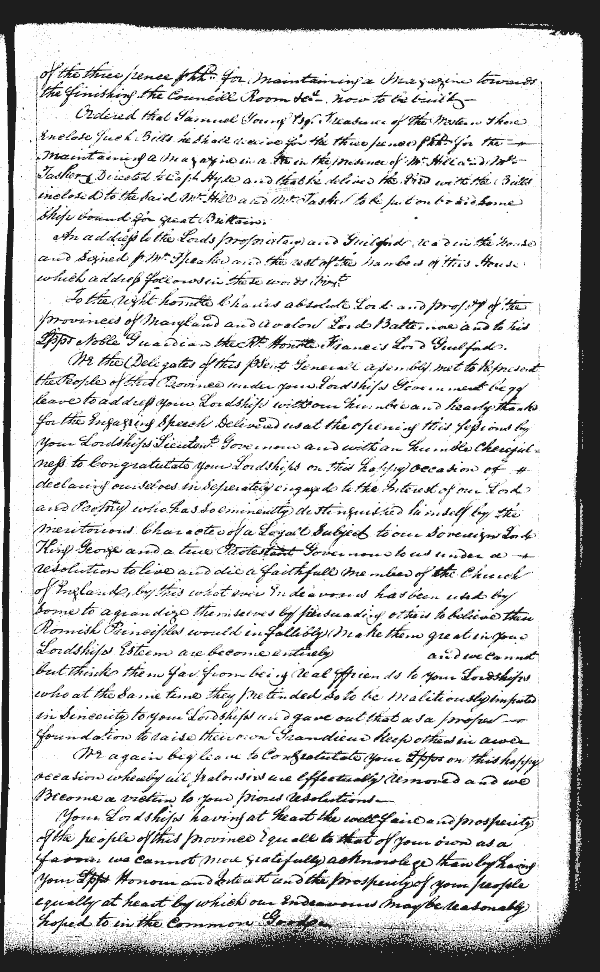 of the three pence p hhd. for maintaining a Magazine towards
the finishing the Councill Room &ca. now to be built
Ordered that Samuel Young Esqr. Treasurer of the Western Shore
Enclose such Bills he shall receive for the three pence p hhd. for the
maintaining a Magazine in a in the presence of Mr. Hill and Mr.
Tasker Directed to Capt Hyde and that he deliver the with the Bills
inclosed to the said Mr. Hill and Mr. Tasker to be put on board some
Ship bound for great Brittain.
An address to the Lords proprietary and Guilford read in the House
and Signed p Mr. Speaker and the rest of the members of this House
which address follows in these words Vizt.
To the right honble Charles absolute Lord and propry of the
provinces of Maryland and avalon Lord Baltemore and to his
Ldpps Noble Guardian the Rt. Honble Francis Lord Guilford.
We the Delegates of this psent Generall assembly met to Represent
the People of this Province under your Lordships Government begg
leave to address your Lordships with our humble and hearty thanks
for the Engaging Speech Delivered us at the opening this Sessions by
your Lordships Lieutent. Governour and with an humble Cheerful-
ness to Congratulate your Lordships on this happy occasion of
declaring ourselves inseperately engaged to the Interest of our Lord
and Proptry who has so eminently distinguished himself by the
meritorious Character of a Loyall Subject to our Sovereign Lord
King George and a true Protestant Governour to us under a
resolution to live and die a faithfull member of the Church
of England, by this what ever Endeavours has been used by
some to agrandize themselves by persuading others to believe their
Romish Principles would infallibly make them great in your
Lordships Esteem are become entirely and we cannot
but think them far from being real ffriends to your Lordships
who at the same time they pretended so to be malitiously imputed
in Sincerity to your Lordships and gave out that as a proper
foundation to raise their own Grandieur keep others in awe
We again beg leave to Congratulate your Ldpps on this happy
occasion whereby all Jealousies are effectually removed and we
Become a victim to your pious resolutions
Your Lordships having at heart the wellfare and prosperity
of the people of this province Equall to that of your own as a
favour we cannot more gratefully acknowledge than by having
your Ldpps Honour and Interest and the prosperity of your people
equally at heart by which our Endeavours may be reasonably
hoped to in the Common